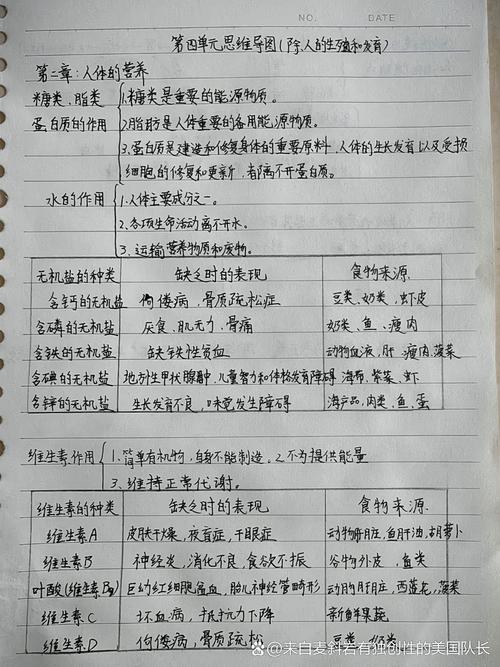 NO. DATE
第四单元思维导图(除人的生殖和发育)
第二章:人体的营养
糖类、脂类 1.糖类是重要的能源物质。
蛋白质的作用 2.脂肪是人体重要的备用能源物质。
3.蛋白质是建造和修复身体的重要原料,人体的生长发育以及受损
细胞的修复和更新,都离不开蛋白质。
水的作用 1.人体主要成分之一。
2.各项生命活动离不开水。
3.运输营养物质和废物。
无机盐的种类 缺乏时的表现 食物来源
含钙的无机盐 佝偻病,骨质疏松症 豆类、奶类,虾皮
含磷的无机盐 厌食、肌无力、骨痛 奶类、鱼、瘦肉
含铁的无机盐 缺铁性贫血 动物血液,肝、瘦肉、菠菜
含碘的无机盐 地方性甲状腺肿,儿童智力和体格发育障碍 海带、紫菜、虾
含锌的无机盐 生长发育不良,味觉发生障碍 海产品,肉类、鱼、蛋
维生素作用 1.简单有机物,自身不能制造。2.不为提供能量
3.维持正常代谢。
维生素的种类 缺乏时的表现 食物来源
维生素A 皮肤干燥,夜盲症,干眼症 动物肝脏,鱼肝油,胡萝卜
维生素B 神经炎,消化不良,食欲不振 谷物外皮,鱼类
叶酸(维生素B9) 巨幼红细胞贫血,胎儿神经管畸形 动物肝脏,西蓝花,菠菜
维生素C 坏血病,抵抗力下降 新鲜果蔬
维生素D 佝偻病,骨质疏松 豆类、奶类
@来自麦斜岩有独创性的美国队长